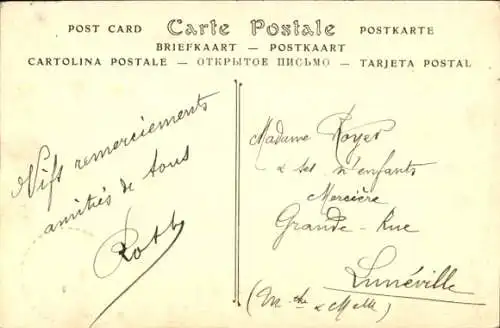 POST CARD Carte Postale POSTKARTE
BRIEFKAART — POSTKAART
CARTOLINA POSTALE — ОТКРЫТОЕ ПИСЬМО — TARJETA POSTAL
Vifs remerciements
amitiés de tous
Madame Royer
& ses enfants
Mercière
Grande-Rue
Lunéville
(Mthe & Mlle)